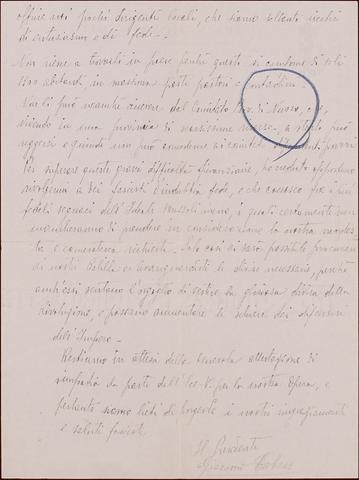 offrire noi pochi dirigenti locali, che siamo soltanto ricchi
di entusiasmo e di fede.-
Non riene a trovarsi in paese perchè questo si compone di soli
1500 abitanti in massima parte pastori e contadini.
Nè si può neanche ricevere dal Comitato Prov. di Nuoro, che,
vivendo in una provincia di
reggersi e quindi non può
Per superare queste gravi difficoltà finanziarie, ho creduto opportuno
rivolgermi a dei fascisti d'indubbia fede, e che essi fra i più
fedeli seguaci dell'Ideale Mussoliniano, i quali certamente non
mancheranno di prendere in considerazione la nostra modes-
ta e cameratesca richiesta. Solo così ci sarà possibile procurare
ai nostri Balilla e Avanguardisti le divise necessarie, perchè
anch'essi sentano l'orgoglio di vestire la gloriosa divisa della
Rivoluzione, e possano aumentare le schiere dei difensori
dell'Impero.-
Restiamo in attesa della benevola attestazione di
simpatia da parte dell'Ecc. V. per la nostra Opera, e
pertanto siamo lieti di porgerle i nostri ringraziamenti
e saluti fascisti
Il Presidente
Giacomo